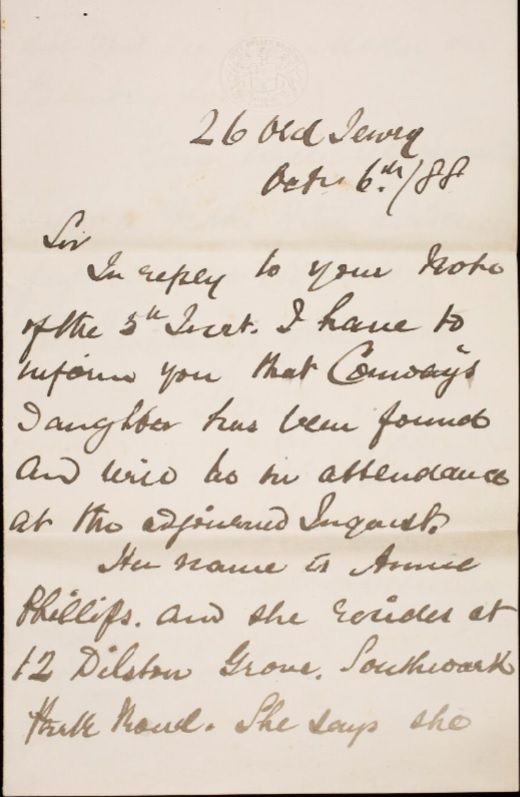 26 Old Jewry
Octr 6th/88
Sir
In reply to your Note
of the 5th Inst. I have to
inform you that Conway's
Daughter has been found
and will be in attendance
at the adjourned Inquest.
Her name is Annie
Phillips. and she resides at
12 Dilston Grove. Southwark
Park Road. She says she